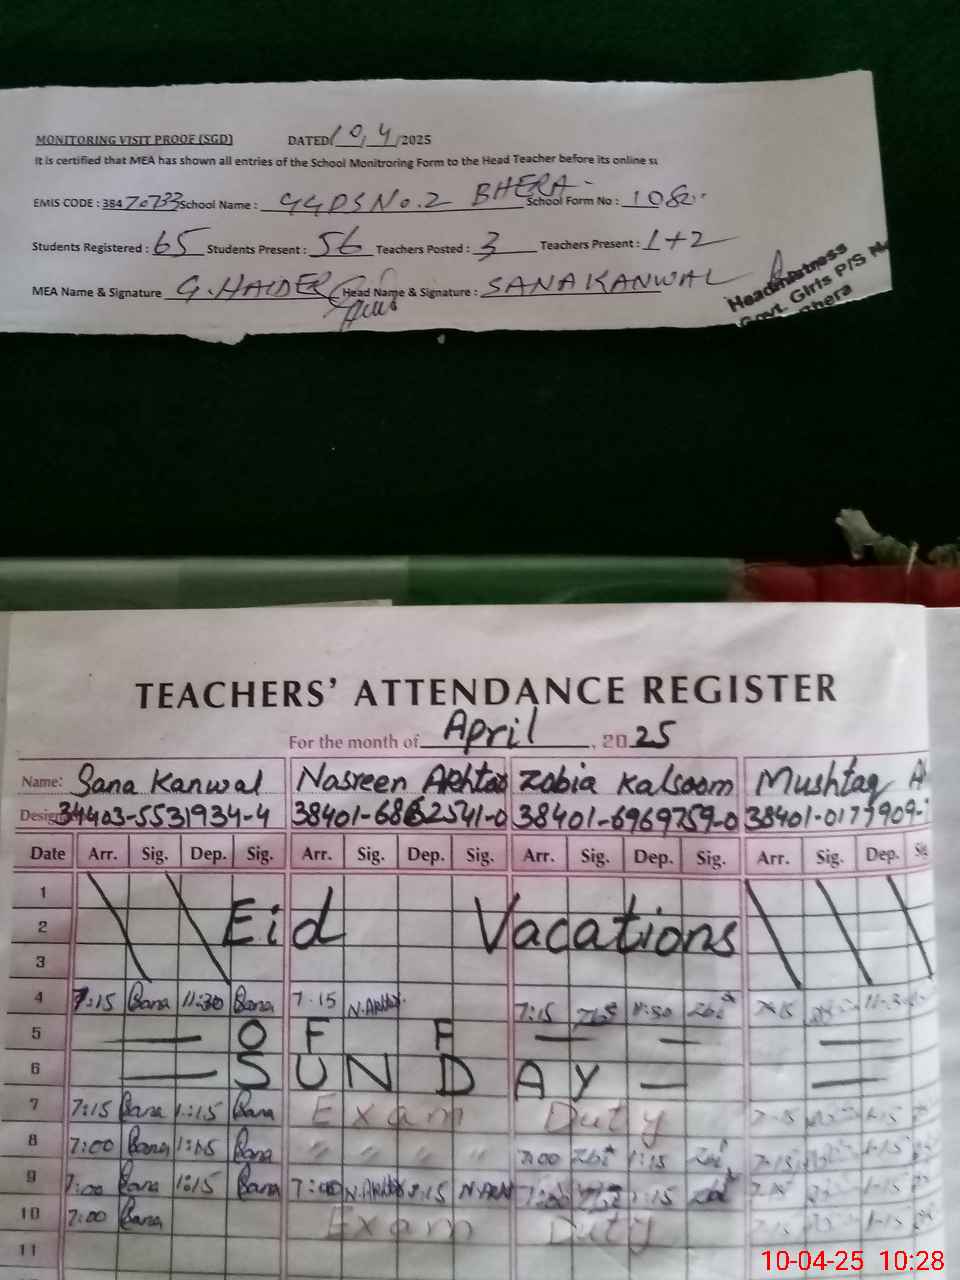 MONITORING VISIT PROOF (SGD) DATED 10/4/2025
It is certified that MEA has shown all entries of the School Monitroring Form to the Head Teacher before its online su
EMIS CODE : 38470733 School Name : GGPS No.2 BHERA School Form No : 1080
Students Registered : 65 Students Present : 56 Teachers Posted : 3 Teachers Present : 1+2
MEA Name & Signature G.HAIDER Head Name & Signature : SANA KANWAL
Headmistress
Govt. Girls P/S No
Bhera
TEACHERS' ATTENDANCE REGISTER
For the month of April, 2025
Name: Sana Kanwal Nasreen Akhtar Zobia Kalsoom Mushtaq A
Desig 34403-5531934-4 38401-6862541-0 38401-6969759-0 38401-0177909-
Date Arr. Sig. Dep. Sig. Arr. Sig. Dep. Sig. Arr. Sig. Dep. Sig. Arr. Sig. Dep. Sig
1
2 Eid Vacations
3
4 7:15 Sana 11:30 Sana 7:15 N.Akhtar 7:15 Zbi 11:30 Zbi 7:15 11:3
5 — OFF — — —
6 — SUNDAY — —
7 7:15 Sana 1:15 Sana Exam Duty 7:15 1:15
8 7:00 Sana 1:15 Sana " " " " 7:00 Zbi 1:15 Zbi 7:15 1:15
9 7:00 Sana 1:15 Sana 7:00 N.Akhtar 1:15 N.Akh 7:00 Zbi 1:15 Zbi 7:15 1-15
10 7:00 Sana Exam Duty 7:15 1-15
11
10-04-25 10:28